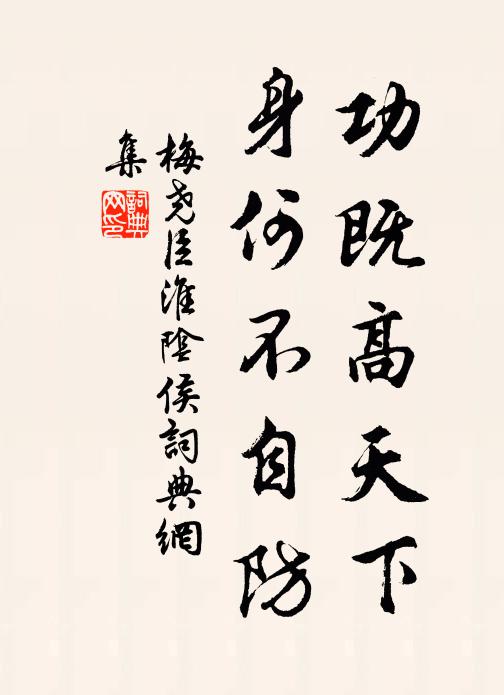 功既高天下
身何不自防
梅尧臣淮陰侯詞典網
集
詞典
网印